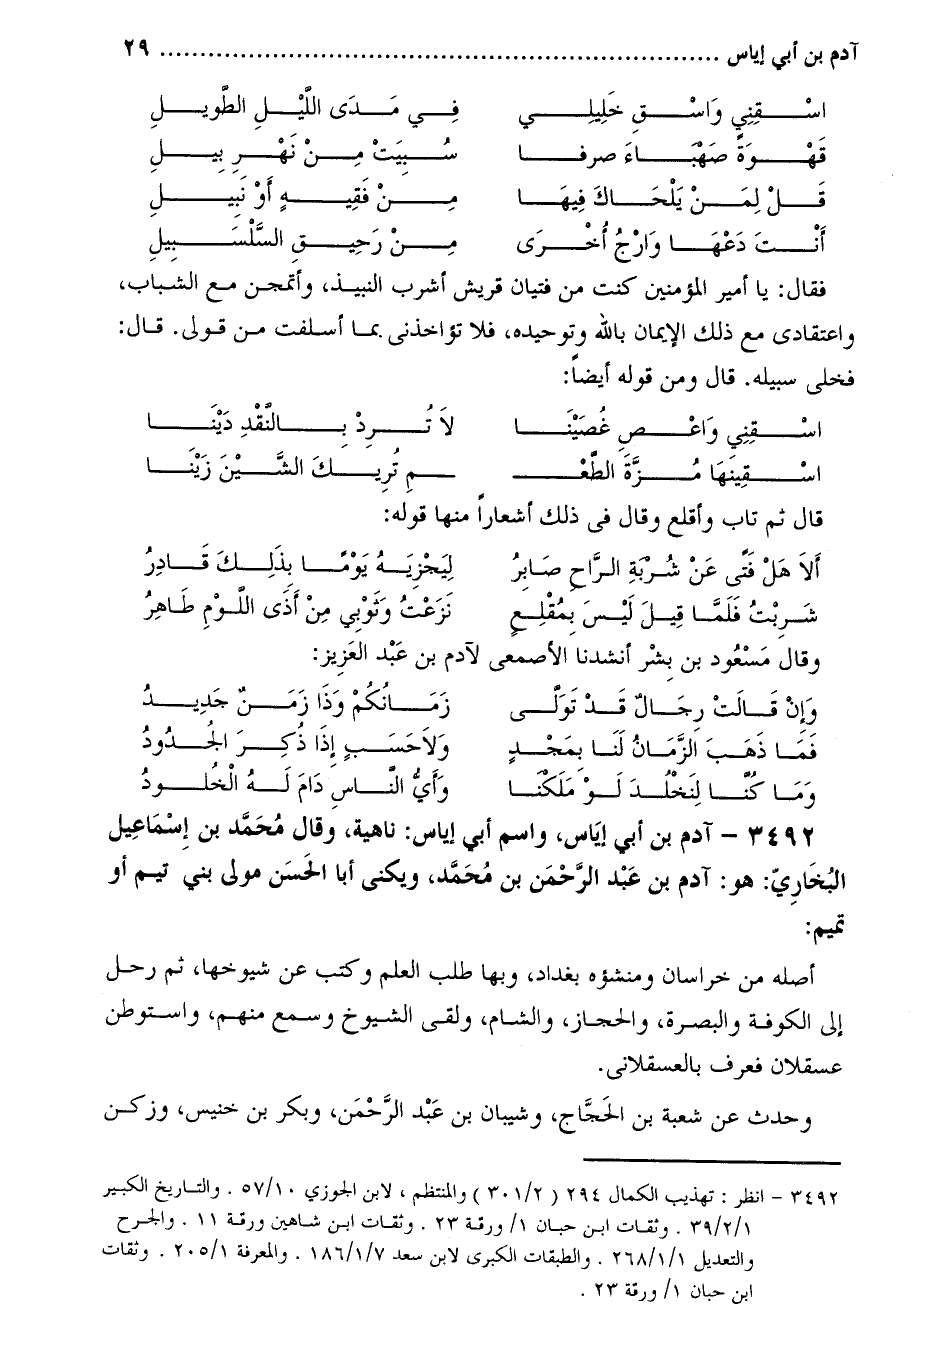 آدم بن أبي إياس ........................................................................ ٢٩
اسْقِنِي وَاسْقِ خَلِيلِي فِي مَدَى اللَّيْلِ الطَّوِيلِ
قَهْوَةً صَهْبَاءَ صرفا سُبِيَتْ مِنْ نَهْرِ بِيلِ
قَلْ لِمَنْ يَلْحَاكَ فِيهَا مِنْ فَقِيهٍ أَوْ نَبِيلِ
أَنْتَ دَعْهَا وَارْجُ أُخْرَى مِنْ رَحِيقِ السَّلْسَبِيلِ
فقال: يا أمير المؤمنين كنت من فتيان قريش أشرب النبيذ، وأتمجن مع الشباب،
واعتقادى مع ذلك الإيمان بالله وتوحيده، فلا تؤاخذنى بما أسلفت من قولى. قال:
فخلى سبيله. قال ومن قوله أيضاً:
اسْقِنِي وَاعْصِ غُصَيْنَا لاَ تُرِدْ بِالنَّقْدِ دَيْنَا
اسْقِينَهَا مُزَّةَ الطَّعْـ ـمِ تُرِيكَ الشَّيْنَ زَيْنَا
قال ثم تاب وأقلع وقال فى ذلك أشعاراً منها قوله:
أَلاَ هَلْ فَتًى عَنْ شُرْبَةِ الرَّاحِ صَابِرُ لِيَجْزِيَهُ يَوْمًا بِذَلِكَ قَادِرُ
شَرِبْتُ فَلَمَّا قِيلَ لَيْسَ بِمُقْلِعٍ نَزَعْتُ وَثَوْبِي مِنْ أَذَى اللَّوْمِ طَاهِرُ
وقال مَسْعُود بن بِشْر أنشدنا الأصمعى لآدم بن عَبْد العَزِيز:
وَإِنْ قَالَتْ رِجَالٌ قَدْ تَوَلَّى زَمَانُكُمْ وَذَا زَمَنٌ جَدِيدُ
فَمَا ذَهَبَ الزَّمَانُ لَنَا بِمَجْدٍ وَلاَحَسَبٍ إِذَا ذُكِرَ الجُدُودُ
وَمَا كُنَّا لِنَخْلُدَ لَوْ مَلَكْنَا وَأَيُّ النَّاسِ دَامَ لَهُ الْخُلُودُ
٣٤٩٢ – آدم بن أبي إيَاس، واسم أبي إياس: ناهية، وقال مُحَمَّد بن إِسْمَاعِيل
البُخَارِيّ: هو: آدم بن عَبْد الرَّحْمَن بن مُحَمَّد، ويكنى أبا الحَسَن مولى بني تيم أو
تميم:
أصله من خراسان ومنشؤه بغداد، وبها طلب العلم وكتب عن شيوخها، ثم رحل
إلى الكوفة والبصرة، والحجاز، والشام، ولقى الشيوخ وسمع منهم، واستوطن
عسقلان فعرف بالعسقلانى.
وحدث عن شعبة بن الحَجَّاج، وشيبان بن عَبْد الرَّحْمَن، وبكر بن خنيس، وزكن
٣٤٩٢ – انظر : تهذيب الكمال ٢٩٤ ( ٣٠١/٢ ) والمنتظم ، لابن الجوزي ٥٧/١٠ . والتاريخ الكبير
٣٩/٢/١ . وثقات ابن حبان ١/ ورقة ٢٣ . وثقات ابن شاهين ورقة ١١ . والجرح
والتعديل ٢٦٨/١/١ . والطبقات الكبرى لابن سعد ١٨٦/١/٧ . والمعرفة ٢٠٥/١ . وثقات
ابن حبان ١/ ورقة ٢٣ .